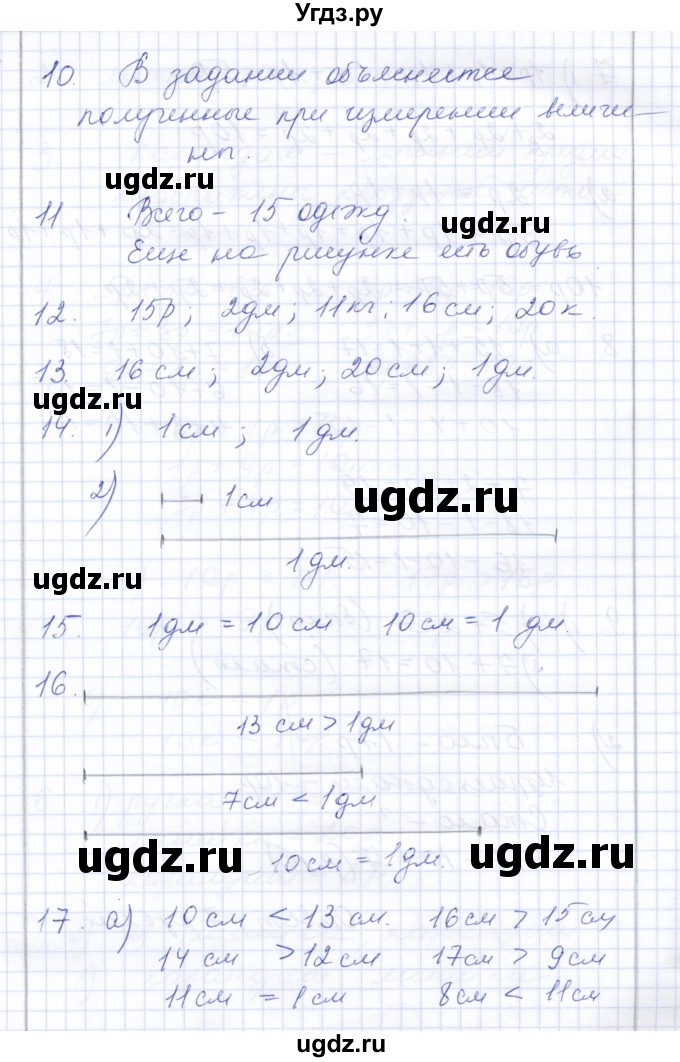 Угдз.ру
10. В задании объясняется
полученные при измерении величи-
ны.
ugdz.ru
11 Всего – 15 одежд.
ugdz.ru
Еще на рисунке есть обувь
12. 15р; 2дм; 11кг; 16 см; 20 к.
13. 16 см; 2дм; 20 см; 1 дм.
ugdz.ru
14. 1) 1 см; 1 дм.
2) 1 см
ugdz.ru
1 дм.
ugdz.ru
15. 1дм = 10 см 10 см = 1 дм.
16.
13 см > 1дм
7см < 1дм
ugdz.ru
ugdz.ru
10см = 1дм.
17. а) 10 см < 13 см. 16см > 15см
14 см > 12см 17см > 9см
11см = 1см 8см < 11см